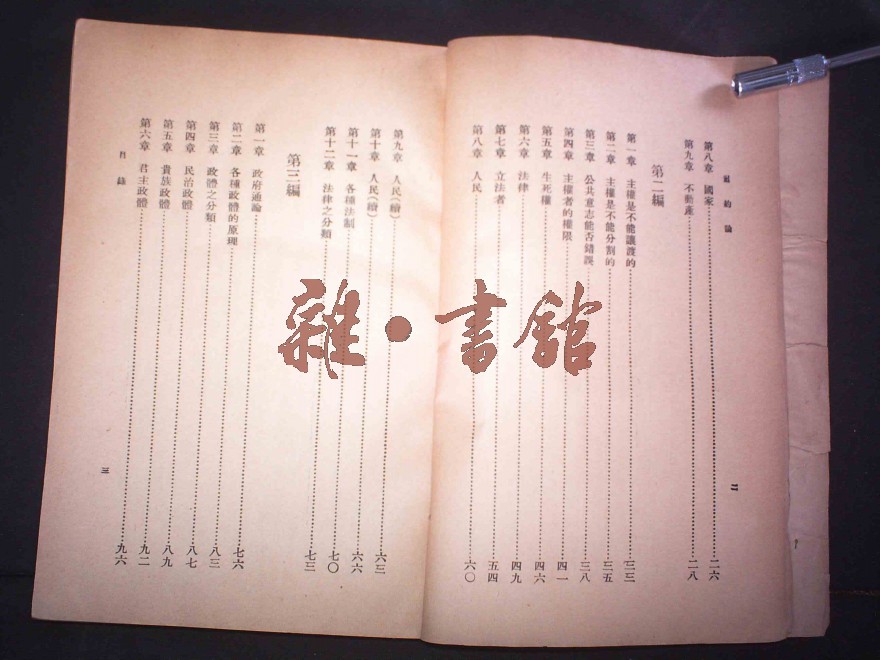 民約論
二
第八章 國家……二六
第九章 不動產……二八
第二編
第一章 主權是不能讓渡的……三三
第二章 主權是不能分割的……三五
第三章 公共意志能否錯誤……三八
第四章 主權者的權限……四一
第五章 生死權……四六
第六章 法律……四九
第七章 立法者……五四
第八章 人民……六〇
第九章 人民(續)……六三
第十章 人民(續)……六六
第十一章 各種法制……七〇
第十二章 法律之分類……七三
第三編
第一章 政府通論……七六
第二章 各種政體的原理……八三
第三章 政體之分類……八七
第四章 民治政體……八九
第五章 貴族政體……九二
第六章 君主政體……九六
目錄
三
雜·書館